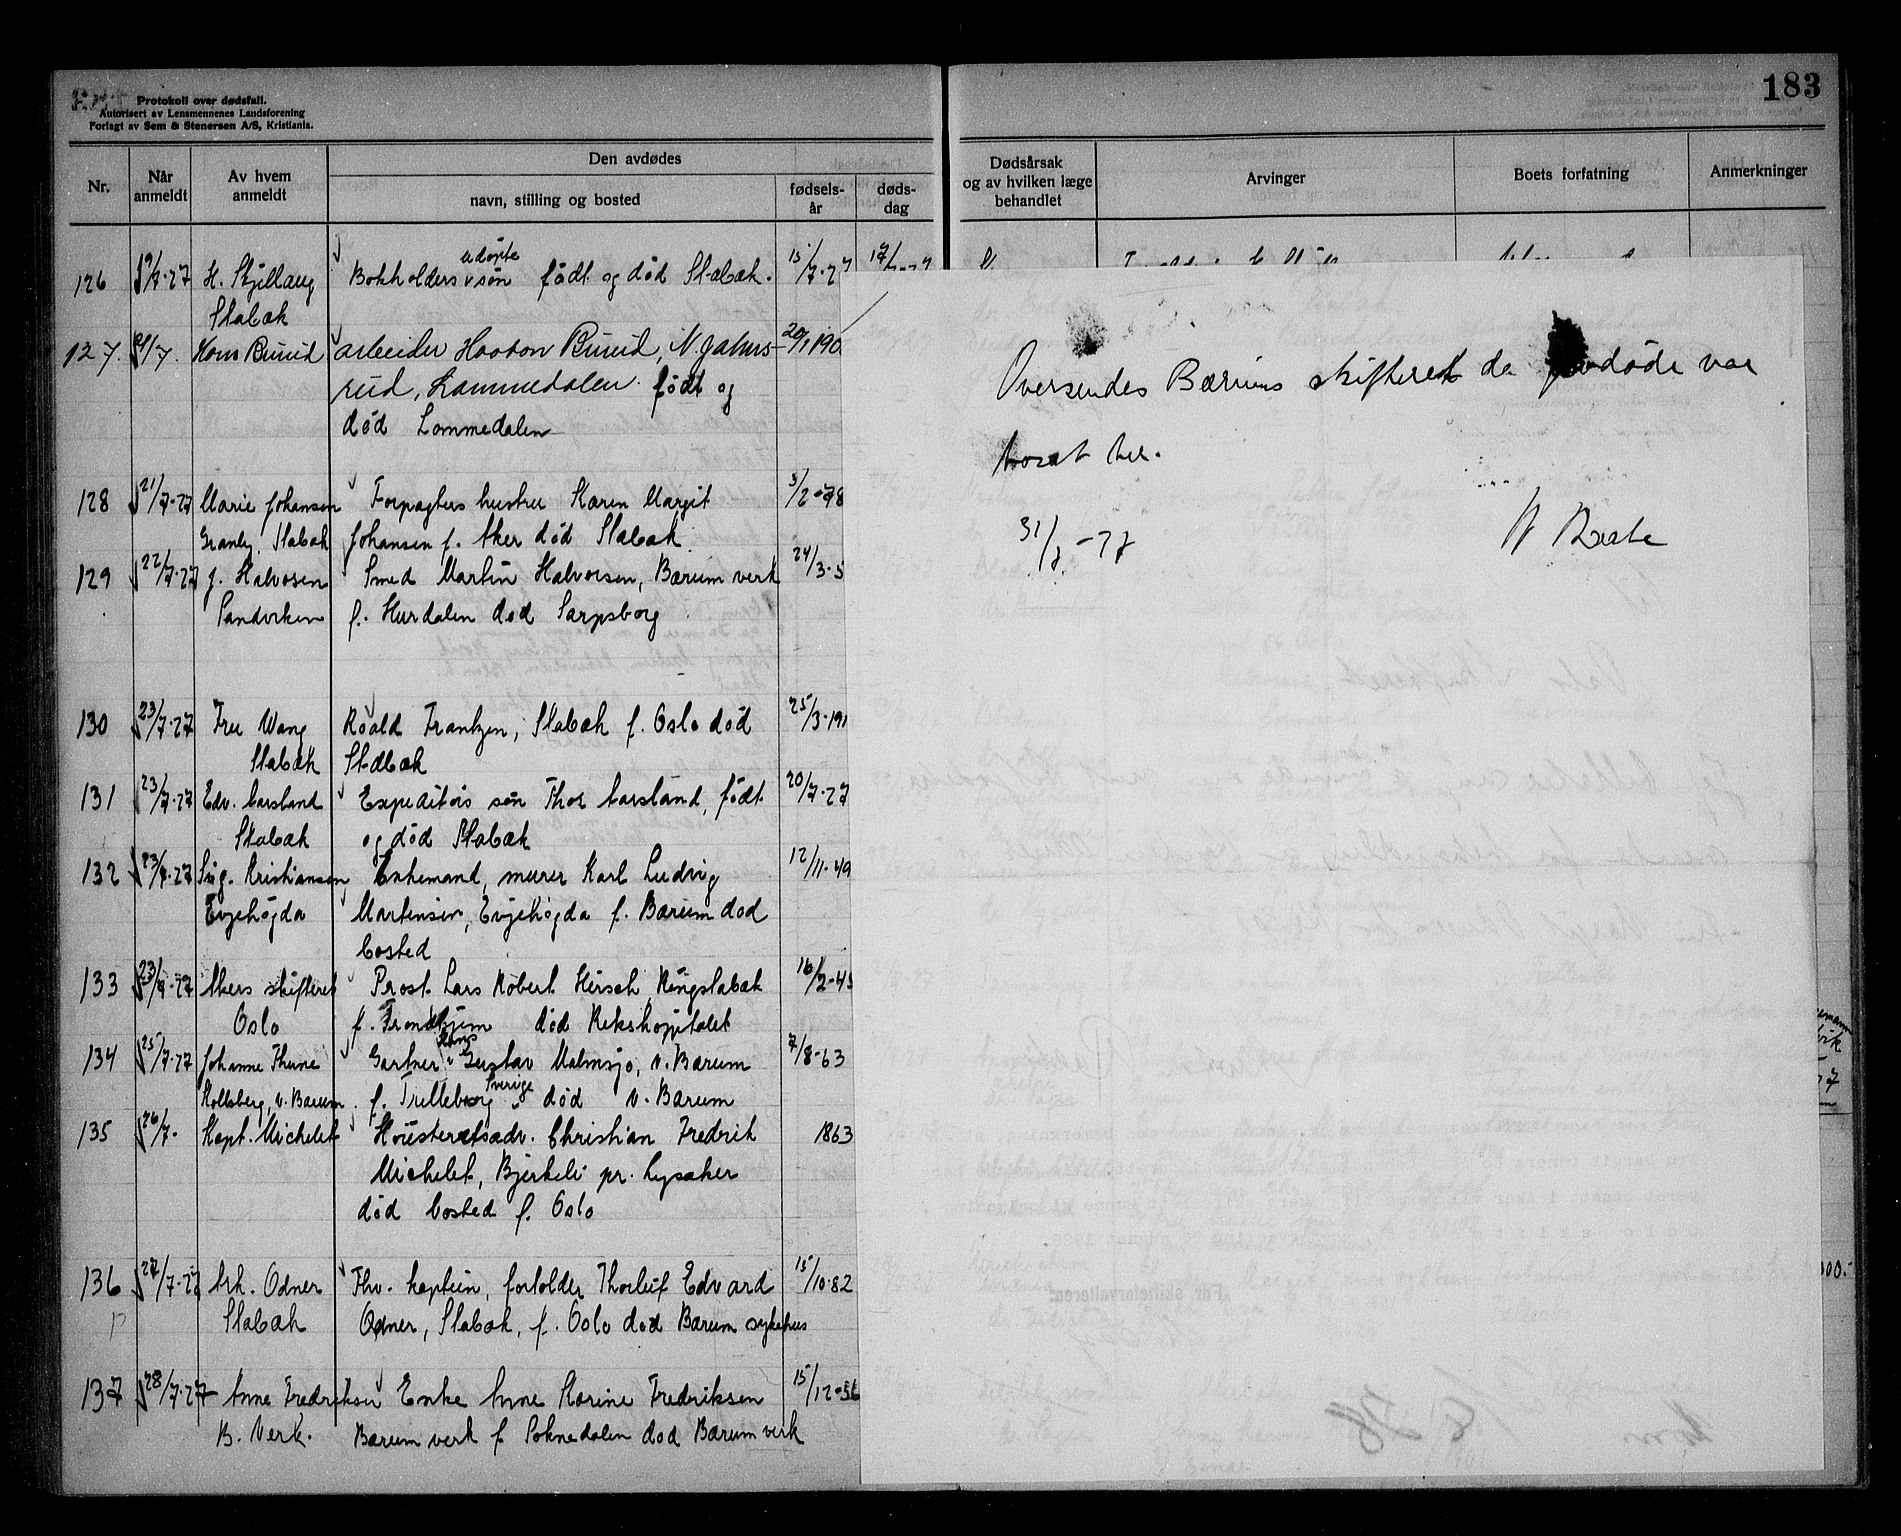 183
Protokoll over dødsfall.
Autorisert av Lensmennenes Landsforening
Forlagt av Sem & Stenersen A/S, Kristiania.
Nr.
Når anmeldt
Av hvem anmeldt
Den avdødes
navn, stilling og bosted
fødsels-år
døds-dag
Dødsårsak og av hvilken læge behandlet
Arvinger
Boets forfatning
Anmerkninger
126 19/7-27 H. Skjillaug Bokholders udøpte søn født og død Stabæk. 15/7-27
Stabæk
127. 21/7. Hans Burud arbeider Haakon Burud, N. Jahns- 20/1 190
rud, Lommedalen. født og
død Lommedalen
128 21/7-27 Marie Johansen Forpagters hustru Karen Margit 3/2-78
Granly. Stabæk Johansen f. Aker død Stabæk
129 22/7-27 J. Halvorsen Smed Martin Halvorsen, Bærum verk 24/3-5
Sandviken f. Hurdalen død Sarpsborg
130 23/7-27 Fru Wang Roald Frantzen, Stabæk f. Oslo død 25/3-191
Stabæk Stabæk
131 23/7-27 Edv. Carsland Expeditørs søn Thor Carsland, født 20/7-27
Stabæk og død Stabæk
132 23/7-27 Sig. Kristiansen, Enkemand, murer Karl Ludvig 12/11-49
Evjehøgda Martinsen, Evjehøgda f. Bærum død
bosted
133 23/7-27 Akers skifteret Prost Lars Robert Hirsch, Ringstabæk 16/2-45
Oslo f. Trondhjem død Rikshospitalet
134 25/7-27 Johanne Thune Gartner Hans Gustav Malmsjø, v. Bærum 7/8-63
Kolsberg, v. Bærum. f. Trelleborg Sverige død v. Bærum
135 26/7- Kapt. Michelet Høiesteretsadv. Christian Fredrik 1863
Michelet, Bjerkeli pr. Lysaker
død bosted f. Oslo
136 27/7-27 Ark. Odner Fhv. kaptein, forvolder Thorleif Edvard 15/10-82
Stabæk Odner, Stabæk, f. Oslo død Bærum sykehus
137 28/7-27 Anne Fredriksen Enke Anne Karine Fredriksen 15/12-56
B. Verk. Bærum verk f. Soknedalen død Bærum verk
Oversendes Bærums skifteret da avdøde var
bosat her.
31/